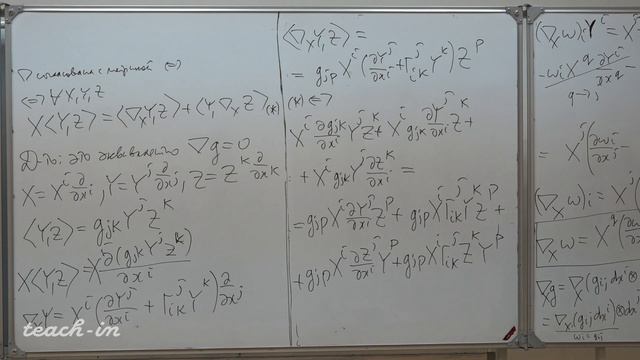 ∇ согласована с метрикой ⇔
⇔ ∀ X,Y,Z
X⟨Y,Z⟩ = ⟨∇_X Y,Z⟩ + ⟨Y,∇_X Z⟩ (*)
Д-ть: это эквивалентно ∇g=0
X = X^i ∂/∂x^i, Y = Y^j ∂/∂x^j, Z = Z^k ∂/∂x^k
⟨Y,Z⟩ = g_{jk} Y^j Z^k
X⟨Y,Z⟩ = X^i ∂(g_{jk} Y^j Z^k)/∂x^i
∇_X Y = X^i (∂Y^j/∂x^i + Γ^j_{ik} Y^k) ∂/∂x^j
⟨∇_X Y, Z⟩ =
= g_{jp} X^i (∂Y^j/∂x^i + Γ^j_{ik} Y^k) Z^p
(*) ⇔
X^i ∂g_{jk}/∂x^i Y^j Z^k + X^i g_{jk} ∂Y^j/∂x^i Z^k +
+ X^i g_{jk} Y^j ∂Z^k/∂x^i =
= g_{jp} X^i ∂Y^j/∂x^i Z^p + g_{jp} X^i Γ^j_{ik} Y^k Z^p +
+ g_{jp} X^i ∂Z^j/∂x^i Y^p + g_{jp} X^i Γ^j_{ik} Z^k Y^p
(∇_X w)_i Y^i = X^j
- w_i X^q ∂Y^i/∂x^q -
q → j
= X^j (∂w_i/∂x^j -
(∇_X w)_i = X^j
∇_X w = X^q (
∇_X g = ∇_X (g_{ij} dx^i) ⊗
= ∇_X (g_{ij} dx^i) ⊗ dx^j
w_i = g_{ij}
teach-in